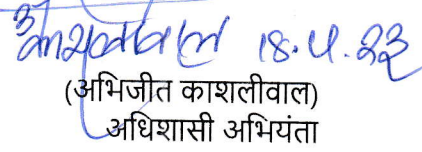 18.4.23
(अभिजीत काशलीवाल)
अधिशासी अभियंता